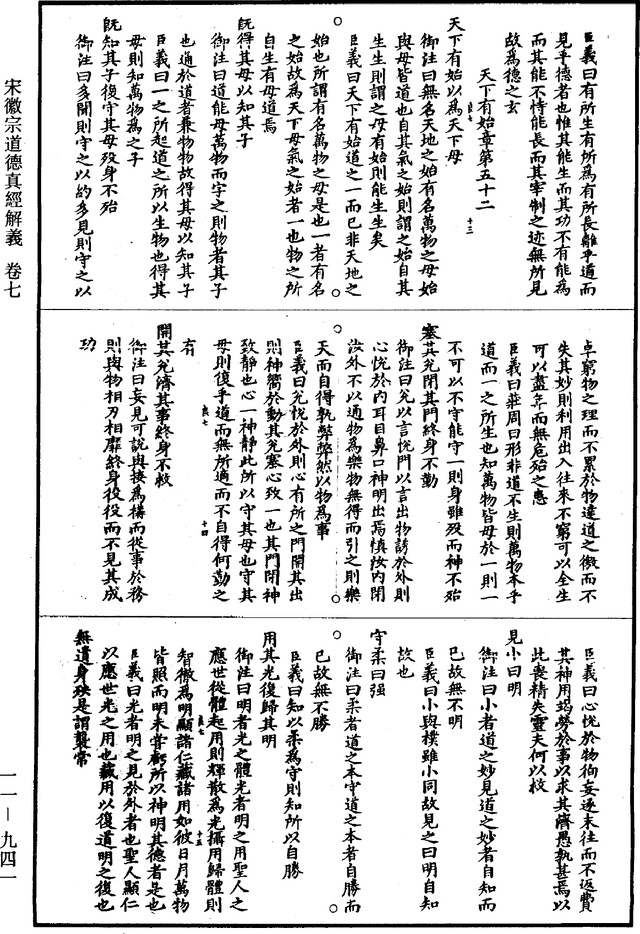 臣義曰有所生有所為有所長離乎道而
見乎德者也惟其能生而其功不有能為
而其能不恃能長而其宰制之迹無所見
故為德之玄
天下有始章第五十二
天下有始以為天下母
御注曰無名天地之始有名萬物之母始
與母皆道也自其氣之始則謂之始自其
生生則謂之母有始則能生生矣
臣義曰天下有始道之一而已非天地之
始也所謂有名萬物之母是也一者有名
之始故為天下母氣之始者一也物之所
自生有母道焉
既得其母以知其子
御注曰道能母萬物而字之則物者其子
也通於道者兼物物故得其母以知其子
臣義曰一之所起道之所以生物也得其
母則知萬物為之子
既知其子復守其母歿身不殆
御注曰多聞則守之以約多見則守之以
卓窮物之理而不累於物達道之徼而不
失其妙則利用出入往來不窮可以全生
可以盡年而無危殆之患
臣義曰莊周曰形非道不生則萬物本乎
道而一之所生也知萬物皆母於一則一
不可以不守能守一則身雖歿而神不殆
塞其兌閉其門終身不勤
御注曰兌以言悅門以言出物誘於外則
心悅於內耳目鼻口神明出焉慎汝內閉
汝外不以通物為樂物無得而引之則樂
天而自得孰弊弊然以物為事
臣義曰兌悅於外則心有所之門開其出
則神嚮於動其兌塞心致一也其門閉神
致靜也心一神靜此所以守其母也守其
母則復乎道而無所適而不自得何勤之
有
開其兌濟其事終身不救
御注曰妄見可說與接為構而從事於務
則與物相刃相靡終身役役而不見其成
功
臣義曰心悅於物徇妄逐末往而不返費
其神用竭勞於事以求其濟愚孰甚焉以
此喪精失靈夫何以救
見小曰明
御注曰小者道之妙見道之妙者自知而
已故無不明
臣義曰小與樸雖小同故見之曰明自知
故也
守柔曰强
御注曰柔者道之本守道之本者自勝而
已故無不勝
臣義曰知以柔為守則知所以自勝
用其光復歸其明
御注曰明者光之體光者明之用聖人之
應世從體起用則輝散為光攝用歸體則
智徹為明顯諸仁藏諸用如彼日月萬物
皆照而明未嘗虧所以神明其德者是也
臣義曰光者明之見於外者也聖人顯仁
以應世光之用也藏用以復道明之復也
無遺身殃是謂襲常
宋徽宗道德真經解義　卷七
一一－九四一